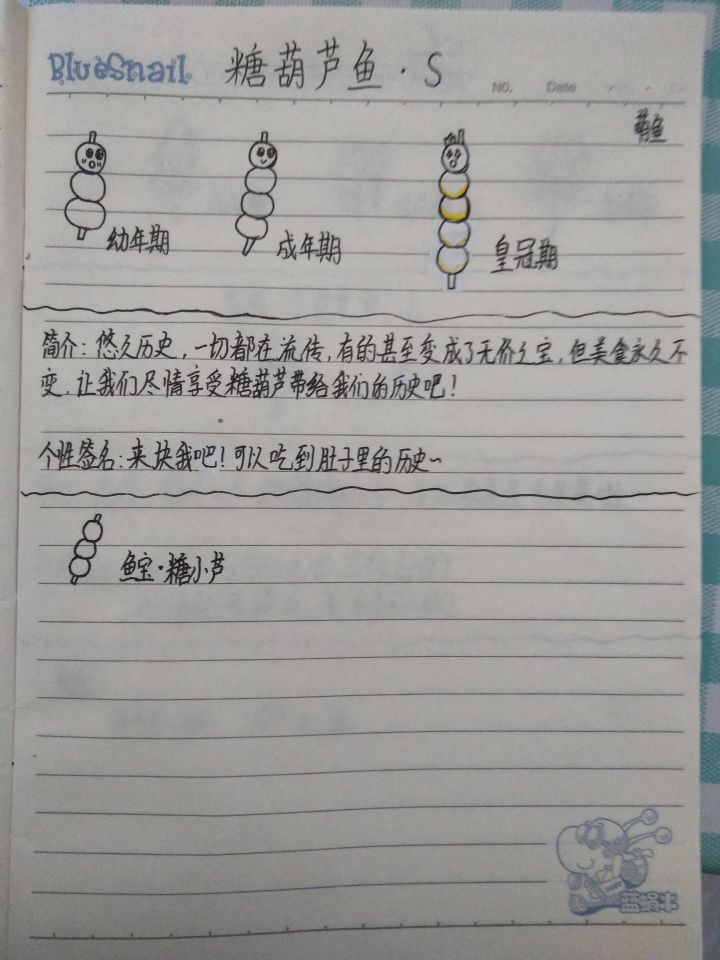 BlueSnail 糖葫芦鱼·S
NO. Date
萌鱼
幼年期 成年期 皇冠期
简介：悠久历史，一切都在流传，有的甚至变成了无价之宝，但美食永久不
变，让我们尽情享受糖葫芦带给我们的历史吧！
个性签名：来块我吧！可以吃到肚子里的历史~
鱼宝·糖小芦
蓝蜗牛